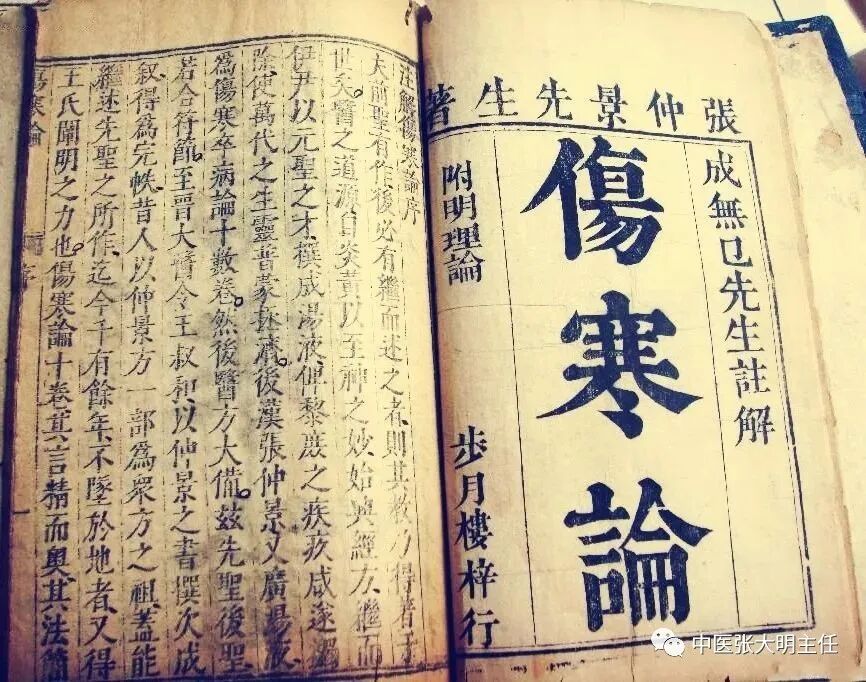 張仲景先生著
成無已先生註解
傷寒論
附明理論
步月樓梓行
注解傷寒論序
夫前聖有作後必有繼而述之者則其教乃得著于
世矣醫之道源自炎黃以至神之妙始興經方繼而
伊尹以元聖之才撰成湯液俾黎庶之疾疢咸遂蠲
除使萬代之生靈普蒙拯濟後漢張仲景又廣湯液
為傷寒卒病論十數卷然後醫方大備茲先聖後聖
若合符節至晉大醫令王叔和以仲景之書撰次成
敘得為完帙昔人以仲景方一部為眾方之祖蓋能
繼述先聖之所作迄今千有餘年不墜於地者又得
王氏闡明之力也傷寒論十卷其言精而奧其法簡
傷寒論
序
中医张大明主任